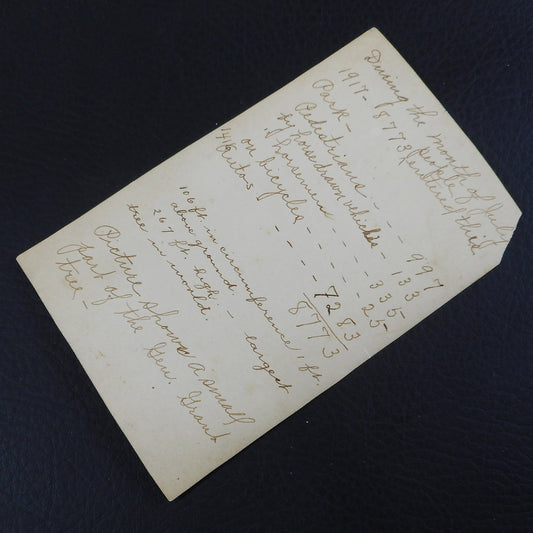 During the month of July
1917 - 8773 people entered this
Park -
Pedestrians - - - - 997
by horse drawn vehicles - - 133
" horsemen - - - - 335
on bicycles - - - - 25
1416 autos - - - - 7283
8773
106 ft. in circumference, 1 ft.
above ground.
267 ft. high. - largest
tree in world.
Picture shows a small
part of the Gen. Grant
tree -